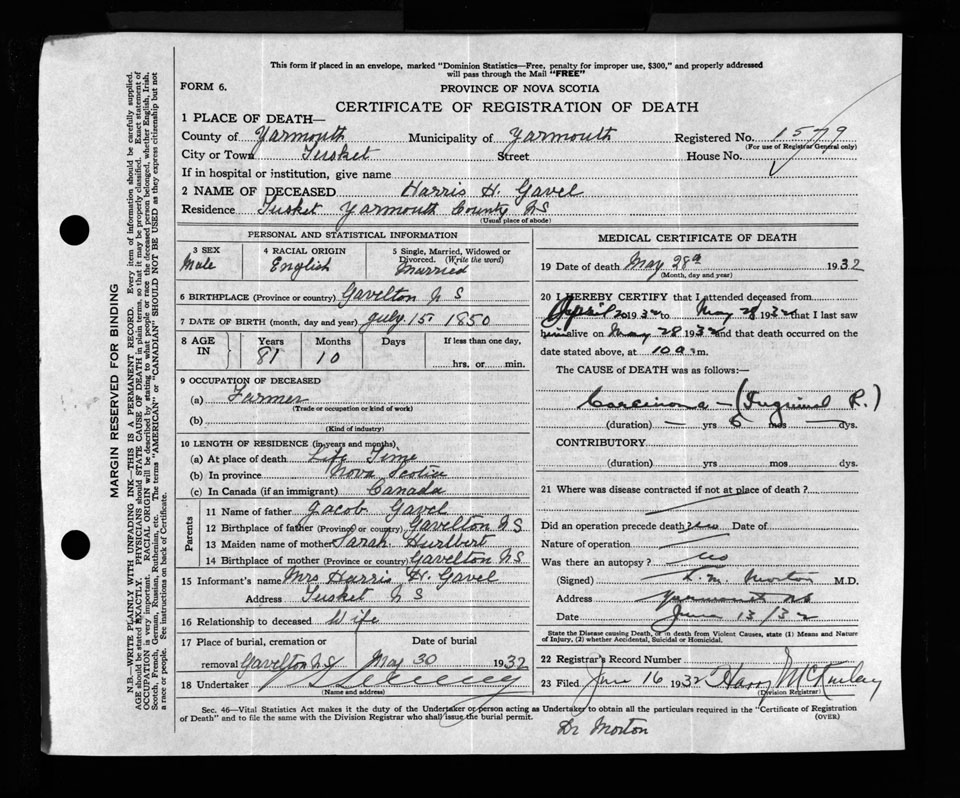 This form if placed in an envelope, marked "Dominion Statistics—Free, penalty for improper use, $300," and properly addressed
will pass through the Mail "FREE"
FORM 6.
PROVINCE OF NOVA SCOTIA
CERTIFICATE OF REGISTRATION OF DEATH
1 PLACE OF DEATH—
County of Yarmouth Municipality of Yarmouth Registered No. 1579
(For use of Registrar General only)
City or Town Tusket Street House No.
If in hospital or institution, give name
2 NAME OF DECEASED Harris H. Gavel
Residence Tusket Yarmouth County N S
(Usual place of abode)
PERSONAL AND STATISTICAL INFORMATION
3 SEX Male
4 RACIAL ORIGIN English
5 Single, Married, Widowed or Divorced. (Write the word) Married
6 BIRTHPLACE (Province or country) Gavelton N S
7 DATE OF BIRTH (month, day and year) July 15 1850
8 AGE IN Years 81 Months 10 Days If less than one day, hrs. or min.
9 OCCUPATION OF DECEASED
(a) Farmer
(Trade or occupation or kind of work)
(b)
(Kind of industry)
10 LENGTH OF RESIDENCE (in years and months)
(a) At place of death Life Time
(b) In province Nova Scotia
(c) In Canada (if an immigrant) Canada
Parents
11 Name of father Jacob Gavel
12 Birthplace of father (Province or country) Gavelton N S
13 Maiden name of mother Sarah Hurlbert
14 Birthplace of mother (Province or country) Gavelton N S
15 Informant's name Mrs Harris H. Gavel
Address Tusket N S
16 Relationship to deceased Wife
17 Place of burial, cremation or removal Gavelton N S Date of burial May 30 1932
18 Undertaker
(Name and address)
MEDICAL CERTIFICATE OF DEATH
19 Date of death May 28th 1932
(Month, day and year)
20 I HEREBY CERTIFY that I attended deceased from
April 20 1932 to May 28 1932 that I last saw
him alive on May 28 1932 and that death occurred on
date stated above, at 10 a m.
The CAUSE OF DEATH was as follows:—
Carcinoma — (Inguinal R.)
(duration) — yrs 6 mos — dys.
CONTRIBUTORY.
(duration) yrs mos dys.
21 Where was disease contracted if not at place of death?
Did an operation precede death? no Date of
Nature of operation
Was there an autopsy? no
(Signed) Morton M.D.
Address Yarmouth NS
Date June 13/32
State the Disease causing Death, or in death from Violent Causes, state (1) Means and Nature
of Injury, (2) whether Accidental, Suicidal or Homicidal.
22 Registrar's Record Number
23 Filed June 16 1932 Harry McKinley
(Division Registrar)
Sec. 46—Vital Statistics Act makes it the duty of the Undertaker or person acting as Undertaker to obtain all the particulars required in the "Certificate of Registration
of Death" and to file the same with the Division Registrar who shall issue the burial permit.
(OVER)
Dr Morton
MARGIN RESERVED FOR BINDING
N.B.—WRITE PLAINLY WITH UNFADING INK—THIS IS A PERMANENT RECORD. Every item of information should be carefully supplied.
AGE should be stated EXACTLY. PHYSICIANS should STATE CAUSE OF DEATH in plain terms, so that it may be properly classified. Exact statement of
OCCUPATION is very important. RACIAL ORIGIN will be described by stating to what people or race the deceased person belonged, whether English, Irish,
Scotch, French, German, Russian, Ruthenian, etc. The terms "AMERICAN" or "CANADIAN" SHOULD NOT BE USED as they express citizenship but not
a race or people. See instructions on back of Certificate.